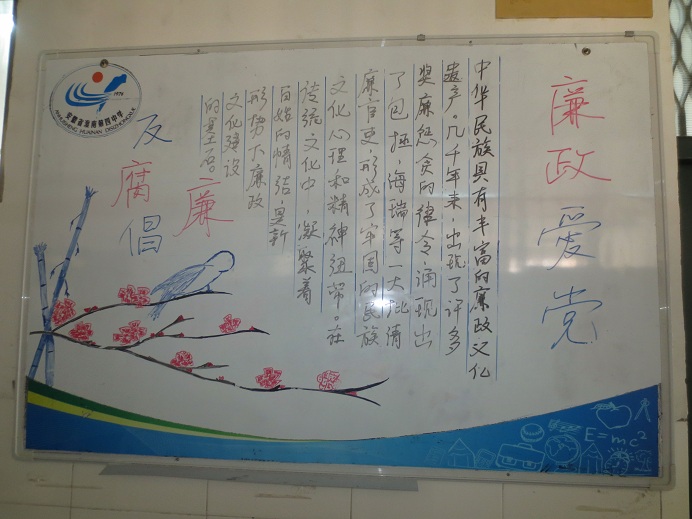 廉政爱党
中华民族具有丰富的廉政文化
遗产。几千年来，出现了许多
奖廉惩贪的律令，涌现出
了包拯，海瑞等一大批清
廉官吏，形成了牢固的民族
文化心理和精神纽带。在
传统文化中，凝聚着
百姓的情结，是新
形势下廉政
文化建设
的基石。
反腐倡廉
安徽省淮南第四中学
ANHUISHENG HUAINAN DISIZHONGXUE
E=mc²